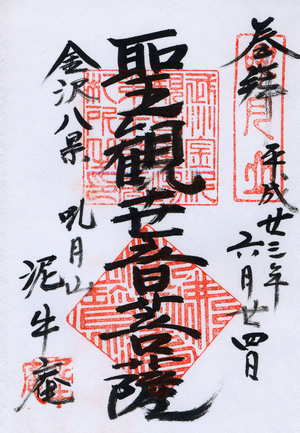 奉拝
平成廿三年
六月廿四日
聖観世音菩薩
金沢八景
吼月山
泥牛庵